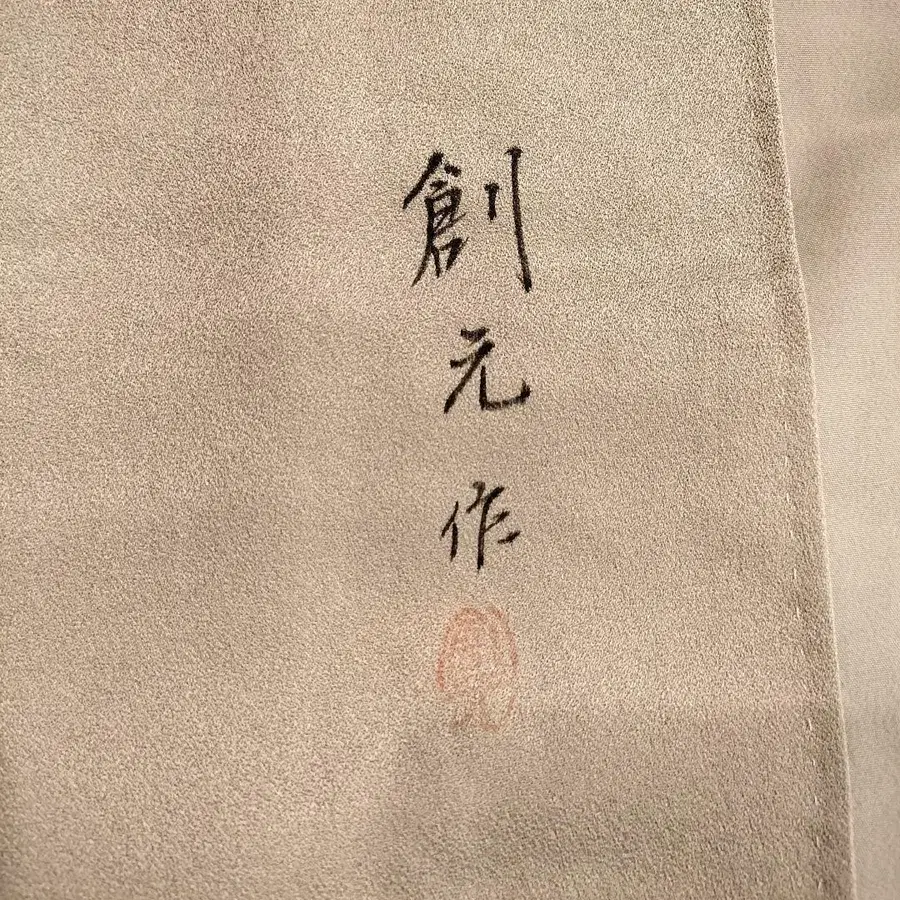 創元作